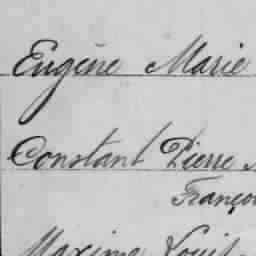 Eugène Marie
Constant Pierre
Franço
Maxime Louis